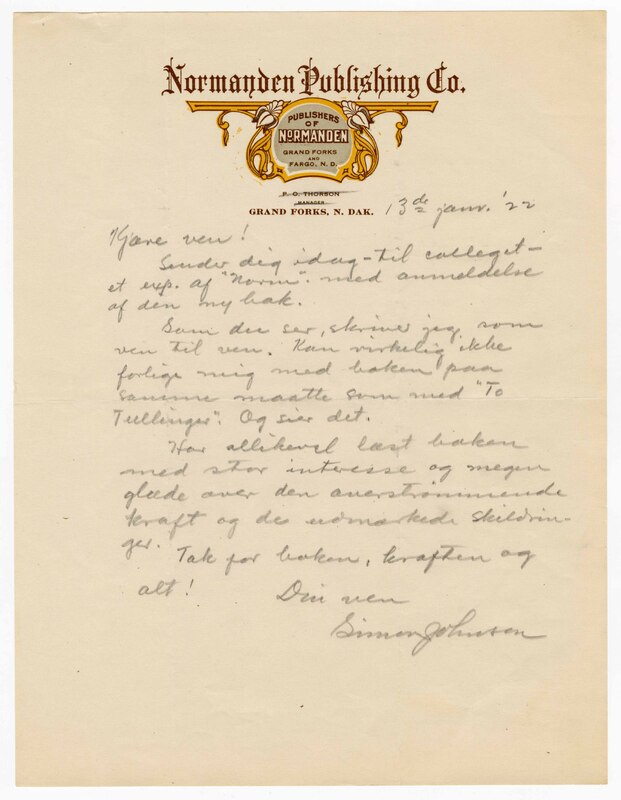 Normanden Publishing Co.
PUBLISHERS
OF
NORMANDEN
GRAND FORKS
AND
FARGO, N. D.
P. O. THORSON
MANAGER
GRAND FORKS, N. DAK. 13de janr. '22
Kjære ven!
Sender dig idag - til colleget -
et exp. af "Norm". med anmeldelse
af den ny bok.
Som du ser, skriver jeg som
ven til ven. Kan virkelig ikke
forlige mig med boken paa
samme maatte som med "To
Tullinger". Og sier det.
Har allikevel læst boken
med stor interesse og megen
glæde over den overstrømmende
kraft og de udmærkede skildrin-
ger. Tak for boken, kraften og
alt! Din ven
Simon Johnson